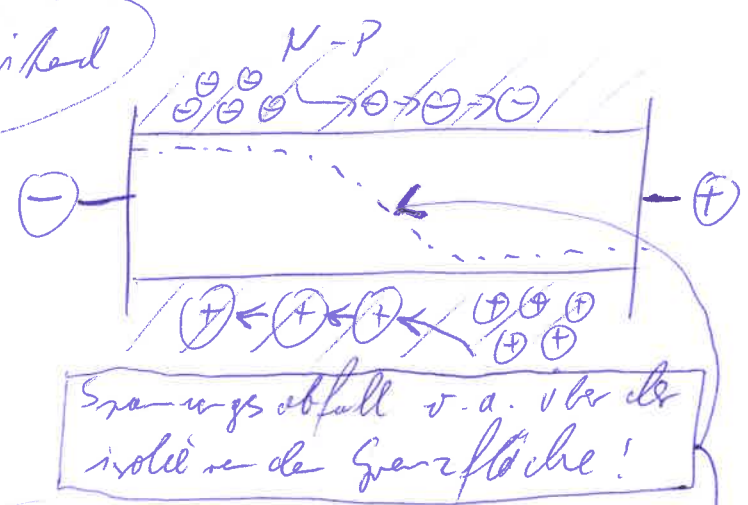 N-P
⊖ ⊖
⊖ ⊖ ⊖ → ⊖ → ⊖ → ⊖
⊖ ⊕
⊕ ← ⊕ ← ⊕ ← ⊕ ⊕ ⊕
⊕ ⊕
Spannungsabfall v.a. über der
isolierenden Grenzfläche!